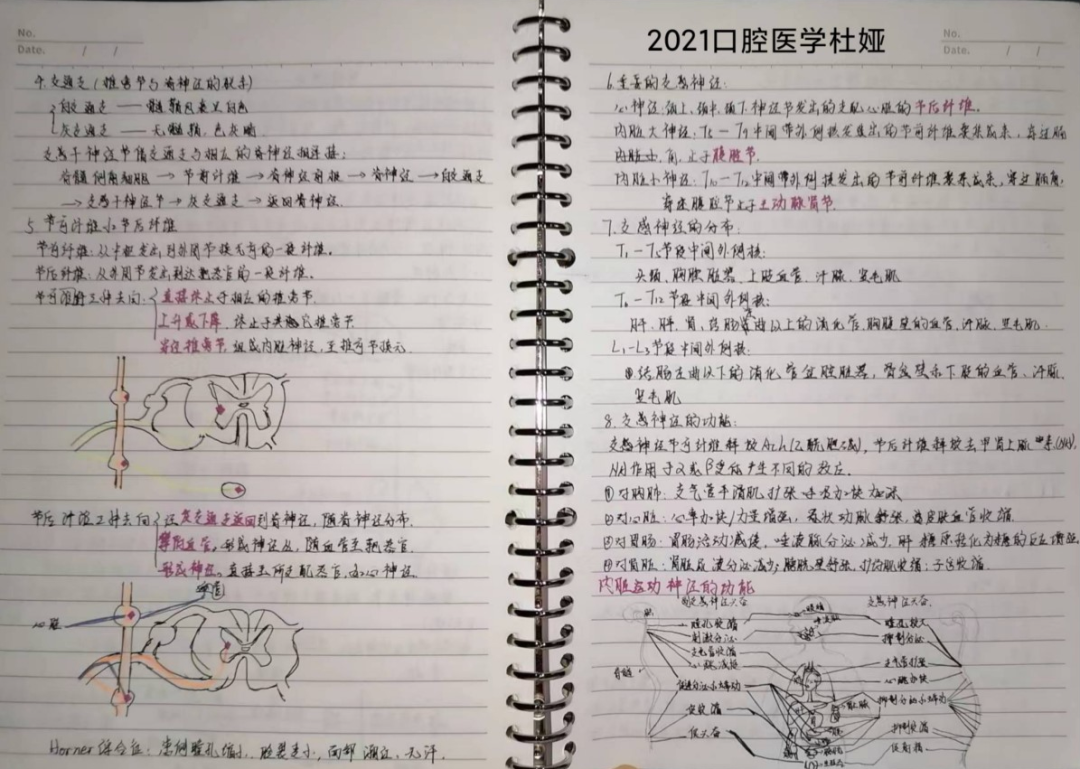 No.
Date. / /
4. 交通支（椎旁节与脊神经的联系）
白交通支 —— 髓鞘反光呈白色
灰交通支 —— 无髓鞘，色灰暗
交感干神经节借交通支与相应的脊神经相连接：
脊髓侧角细胞 → 节前纤维 → 脊神经前根 → 脊神经 → 白交通支
→ 交感干神经节 → 灰交通支 → 返回脊神经.
5. 节前纤维与节后纤维
节前纤维：从中枢发出到外周节换元前的一段纤维。
节后纤维：从外周节发出到达靶器官的一段纤维。
节前 三种去向：
直接终止于相应的椎旁节.
上升或下降，终止于其他椎旁节.
穿经椎旁节 组成内脏神经，至椎前节换元.
节后 三种去向
经灰交通支返回到脊神经，随脊神经分布.
攀附血管，形成神经丛，随血管至靶器官.
形成神经，直接至所支配器官，如心神经.
血管
心脏
Horner综合征：患侧瞳孔缩小，睑裂变小，面部潮红，无汗.
2021口腔医学杜娅
No.
Date. / /
6. 重要的交感神经：
心神经：颈上、颈中、颈下神经节发出的支配心脏的节后纤维。
内脏大神经：T₆—T₉中间带外侧核发出的节前纤维聚集成束，穿过膈
止于腹腔节.
内脏小神经：T₁₀—T₁₂中间带外侧核发出的节前纤维聚集成束，穿过膈
止于主动脉肾节.
7. 交感神经的分布：
T₁—T₅节段中间外侧核：
头颈、胸腔脏器、上肢血管、汗腺、竖毛肌
T₆—T₁₂节段中间外侧核：
肝、脾、肾、结肠左曲以上的消化管，胸腹壁的血管，汗腺，竖毛肌.
L₁—L₃节段中间外侧核：
结肠左曲以下的消化管 盆腔脏器，骨盆壁与下肢的血管、汗腺、
竖毛肌
8. 交感神经的功能：
交感神经节前纤维释放Ach（乙酰胆碱），节后纤维释放去甲肾上腺素(NA).
NA作用于α或β受体产生不同的效应.
①对胸肺：支气管平滑肌扩张 呼吸加快加深
②对心脏：心率加快/力量增强，冠状动脉舒张，皮肤血管收缩.
③对胃肠：胃肠活动减慢，唾液腺分泌减少，肝糖原转化为糖的反应增强
④对肾脏：肾脏尿液分泌减少；膀胱壁舒张，括约肌收缩；子宫收缩.
内脏运动神经的功能
副交感神经兴奋
交感神经兴奋
瞳孔收缩
刺激分泌
支气管收缩
心跳减慢
促进分泌与蠕动
使收缩
瞳孔散大
抑制分泌
支气管扩张
心跳加快
抑制分泌与蠕动
抑制收缩
脊髓